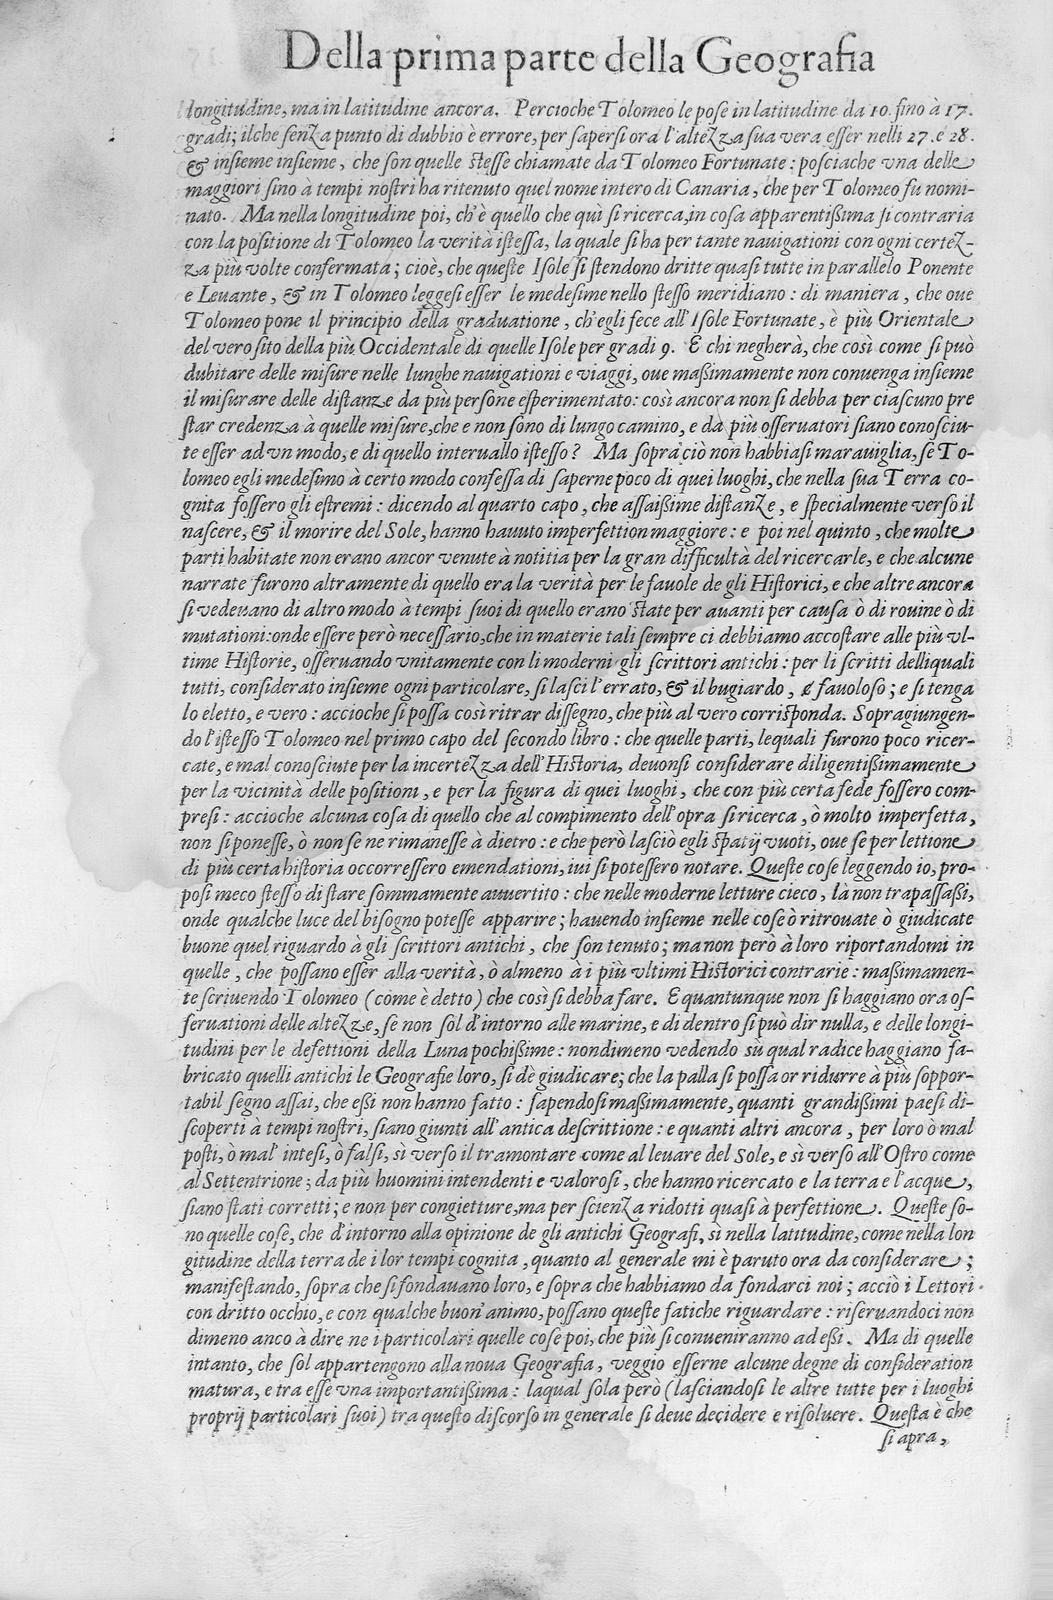 Della prima parte della Geografia
longitudine, ma in latitudine ancora. Percioche Tolomeo le pose in latitudine da 10. fino à 17.
gradi; ilche senza punto di dubbio è errore, per sapersi ora l'altezza sua vera esser nelli 27. e 28.
& insieme insieme, che son quelle stesse chiamate da Tolomeo Fortunate: posciache vna delle
maggiori sino à tempi nostri ha ritenuto quel nome intero di Canaria, che per Tolomeo fu nomi-
nato. Ma nella longitudine poi, ch'è quello che quì si ricerca, in cosa apparentißima si contraria
con la positione di Tolomeo la verità istessa, la quale si ha per tante nauigationi con ogni certez-
za più volte confermata; cioè, che queste Isole si stendono dritte quasi tutte in parallelo Ponente
e Leuante, & in Tolomeo leggesi esser le medesime nello stesso meridiano: di maniera, che oue
Tolomeo pone il principio della graduatione, ch'egli fece all'Isole Fortunate, è più Orientale
del vero sito della più Occidentale di quelle Isole per gradi 9. E chi negherà, che così come si può
dubitare delle misure nelle lunghe nauigationi e viaggi, oue maßimamente non conuenga insieme
il misurare delle distanze da più persone esperimentato: così ancora non si debba per ciascuno pre
star credenza à quelle misure, che e non sono di lungo camino, e da più osseruatori siano conosciu-
te esser ad vn modo, e di quello interuallo istesso? Ma sopra ciò non habbiasi marauiglia, se To-
lomeo egli medesimo à certo modo confessa di saperne poco di quei luoghi, che nella sua Terra co-
gnita fossero gli estremi: dicendo al quarto capo, che assaissime distanze, e specialmente verso il
nascere, & il morire del Sole, hanno hauuto imperfettion maggiore: e poi nel quinto, che molte
parti habitate non erano ancor venute à notitia per la gran difficultà del ricercarle, e che alcune
narrate furono altramente di quello era la verità per le fauole de gli Historici, e che altre ancora
si vedeuano di altro modo à tempi suoi di quello erano state per auanti per causa ò di rouine ò di
mutationi: onde essere però necessario, che in materie tali sempre ci debbiamo accostare alle più vl-
time Historie, osseruando vnitamente con li moderni gli scrittori antichi: per li scritti delliquali
tutti, considerato insieme ogni particolare, si lasci l'errato, & il bugiardo, e fauoloso; e si tenga
lo eletto, e vero: accioche si possa così ritrar dissegno, che più al vero corrisponda. Sopragiungen-
do l'istesso Tolomeo nel primo capo del secondo libro: che quelle parti, lequali furono poco ricer-
cate, e mal conosciute per la incertezza dell'Historia, deuonsi considerare diligentißimamente
per la vicinità delle positioni, e per la figura di quei luoghi, che con più certa fede fossero com-
presi: accioche alcuna cosa di quello che al compimento dell'opra si ricerca, ò molto imperfetta,
non si ponesse, ò non se ne rimanesse à dietro: e che però lasciò egli spatij vuoti, oue se per lettione
di più certa historia occorressero emendationi, iui si potessero notare. Queste cose leggendo io, pro-
posi meco stesso di stare sommamente auuertito: che nelle moderne letture cieco, là non trapassassi,
onde qualche luce del bisogno potesse apparire; hauendo insieme nelle cose ò ritrouate ò giudicate
buone quel riguardo à gli scrittori antichi, che son tenuto; ma non però à loro riportandomi in
quelle, che possano esser alla verità, ò almeno à i più vltimi Historici contrarie: maßimamen-
te scriuendo Tolomeo (come è detto) che così si debba fare. E quantunque non si haggiano ora os-
seruationi delle altezze, se non sol d'intorno alle marine, e di dentro si può dir nulla, e delle longi-
tudini per le defettioni della Luna pochißime: nondimeno vedendo sù qual radice haggiano fa-
bricato quelli antichi le Geografie loro, si dè giudicare; che la palla si possa or ridurre à più soppor-
tabil segno assai, che eßi non hanno fatto: sapendosi maßimamente, quanti grandißimi paesi di-
scoperti à tempi nostri, siano giunti all'antica descrittione: e quanti altri ancora, per loro ò mal
posti, ò mal' intesi, ò falsi, sì verso il tramontare come al leuare del Sole, e sì verso all'Ostro come
al Settentrione; da più huomini intendenti e valorosi, che hanno ricercato e la terra e l'acque,
siano stati corretti; e non per congietture, ma per scienza ridotti quasi à perfettione. Queste so-
no quelle cose, che d'intorno alla opinione de gli antichi Geografi, sì nella latitudine, come nella lon
gitudine della terra de i lor tempi cognita, quanto al generale mi è paruto ora da considerare;
manifestando, sopra che si fondauano loro, e sopra che habbiamo da fondarci noi; acciò i Lettori
con dritto occhio, e con qualche buon'animo, possano queste fatiche riguardare: riseruandoci non
dimeno anco à dire ne i particolari quelle cose poi, che più si conueniranno ad eßi. Ma di quelle
intanto, che sol appartengono alla noua Geografia, veggio esserne alcune degne di consideration
matura, e tra esse vna importantißima: laqual sola però (lasciandosi le altre tutte per i luoghi
proprij particolari suoi) tra questo discorso in generale si deue decidere e risoluere. Questa è che
si apra,